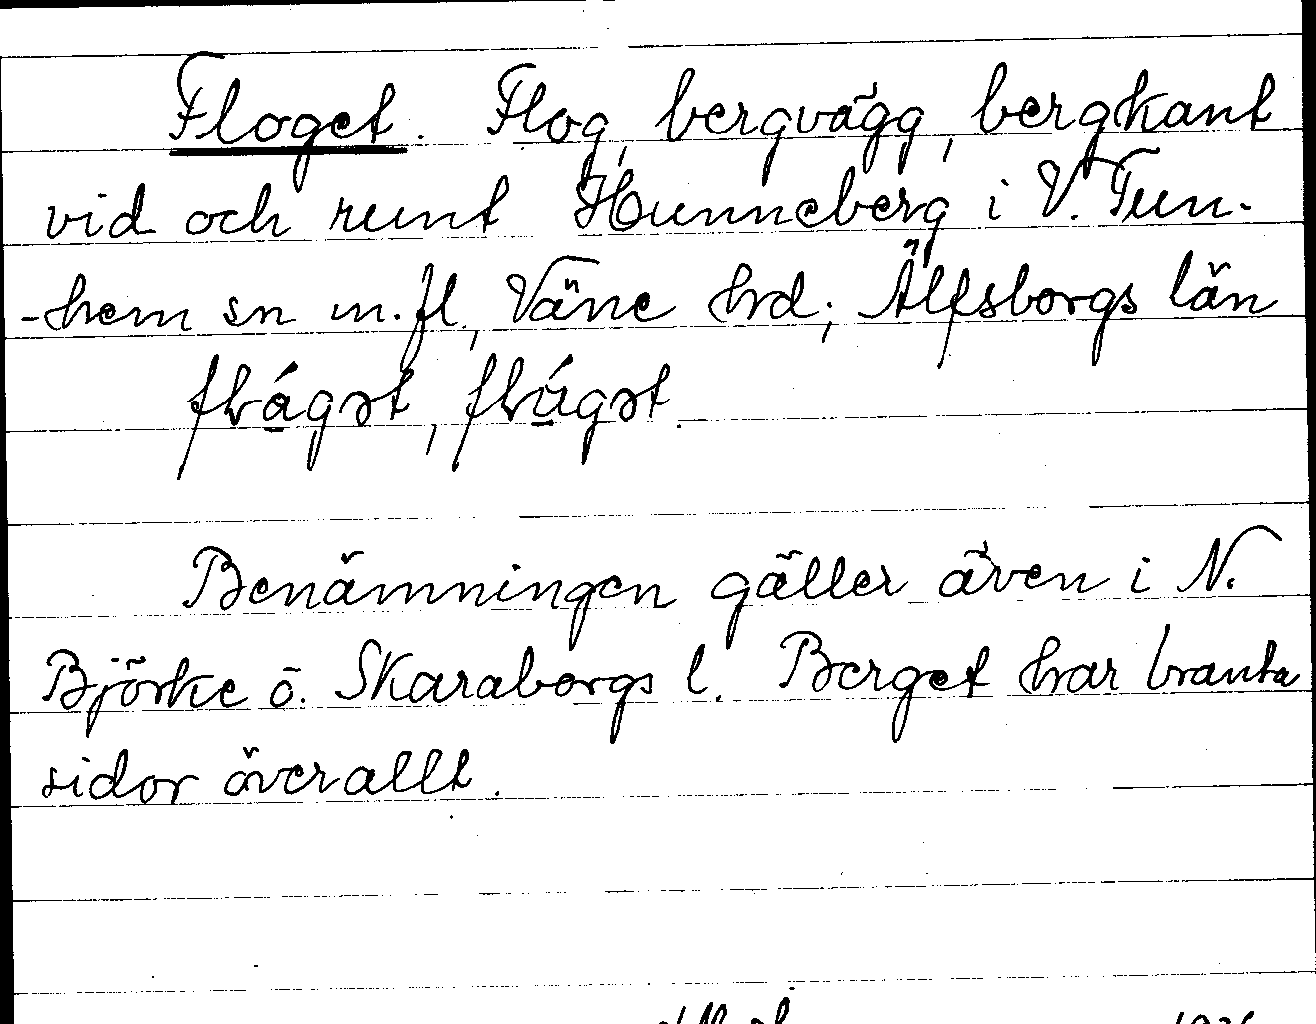 Floget. Flog, bergvägg, bergkant
vid och runt Hunneberg i V. Tun-
-hem sn m.fl., Väne hrd; Älfsborgs län
Benämningen gäller även i N.
Björke ö. Skaraborgs l. Berget har branta
sidor överallt.